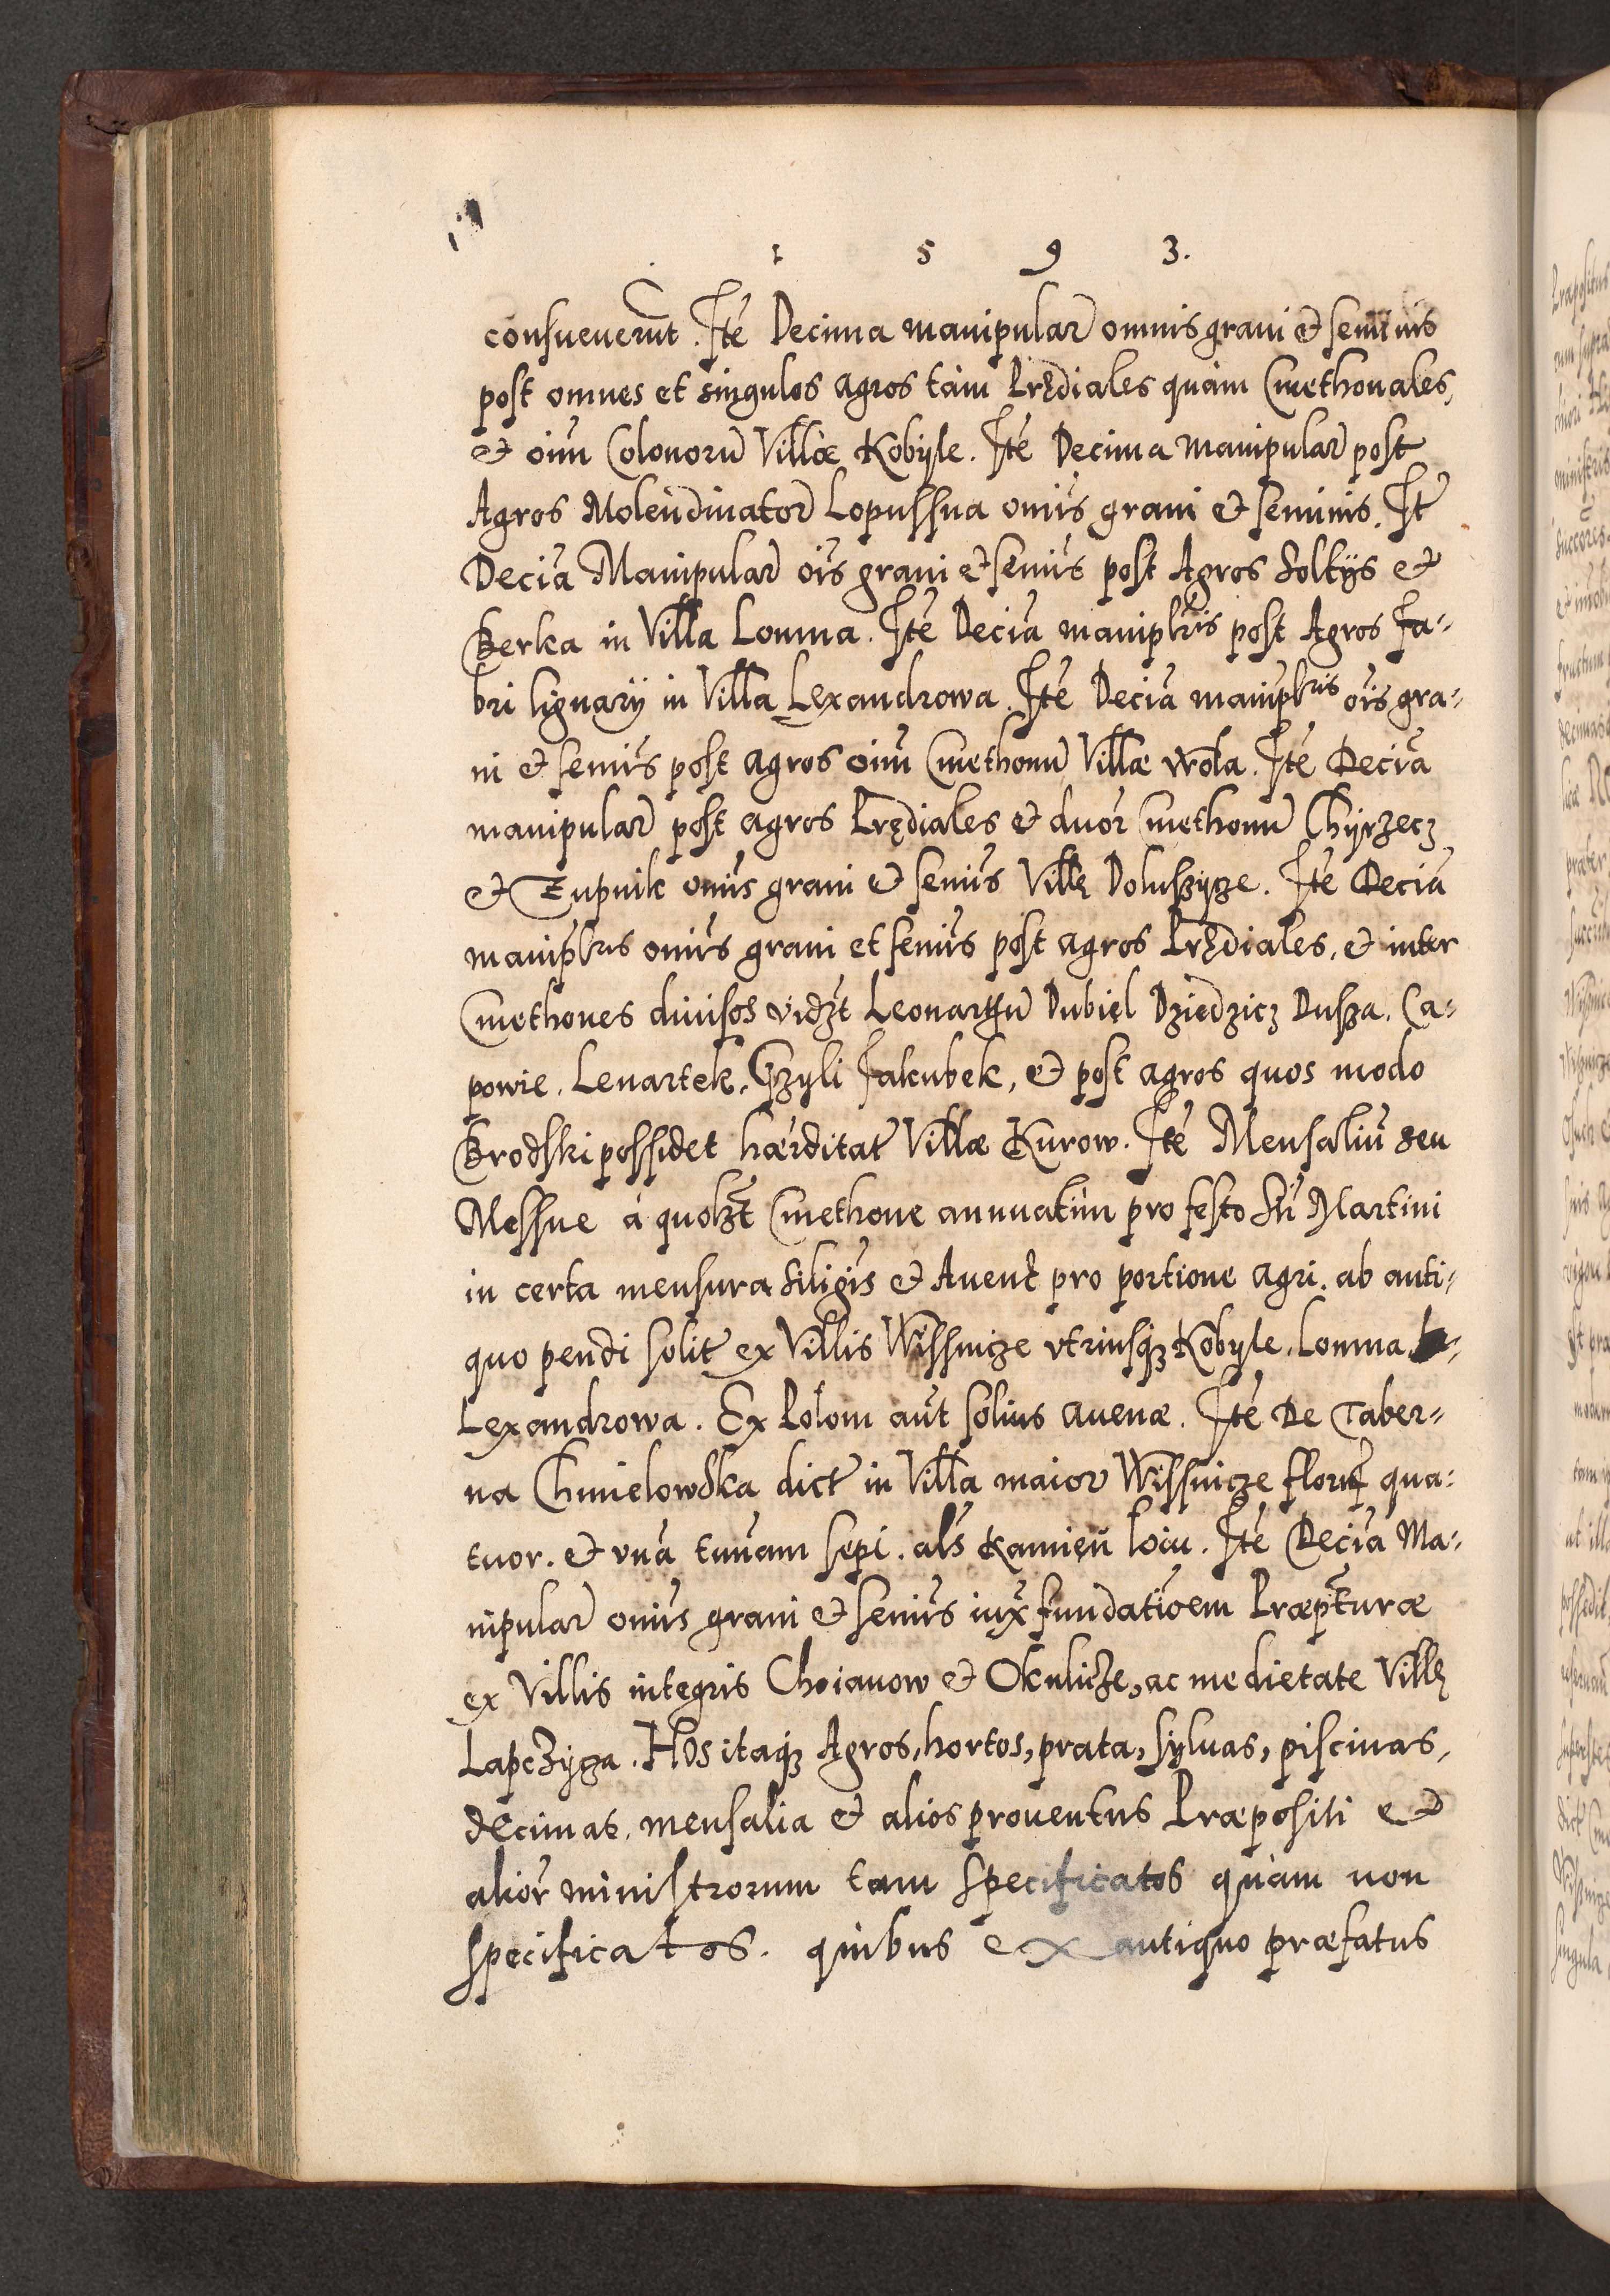 1 5 9 3.
consueuerũt. Itẽ Decima manipular̃ omnis grani et seminis
post omnes et singulos agros tàm Prędiales quàm Cmethonales,
et oĩm Colonorũ Villæ Kobÿle. Itẽ Decima manipular̃ post
Agros Molendinator̃ Lopussna om̃is grani et seminis. It̃
Decĩa Manipular̃ oĩs grani et semĩs post Agros Soltÿs et
Berka in Villa Lomna. Itẽ Decĩa manipl̃ris post Agros Fa-
bri lignarÿ in Villa Lexandrowa. Itẽ Decĩa manipl̃ris oĩs gra-
ni et semĩs post agros oĩm Cmethonũ Villæ Wola. Itẽ Decĩa
manipular̃ post agros Prędiales et duor̃ Cmethonũ Chÿrzecz
et Zupnik om̃is grani et semĩs Villę Doluszÿcze. Itẽ Decĩa
manipl̃ris om̃is grani et semĩs post agros Prędiales, et inter
Cmethones diuisos vidz̃t Leonartũ Dubiel Dziedzicz Dusza. Ca-
powie. Lenartek. Gzyli Jakubek, et post agros quos modo
Brodski possidet hær̃ditat̃ Villæ Kurow. Itẽ Mensaliũ seu
Messne à quolz̃t Cmethone annuatim pro festo S̃ti Martini
in certa mensura siligĩs et Auenę pro portione agri. ab anti-
quo pendi solit̃ ex Villis Wissnicze vtriusq̃z Kobyle. Lomna
Lexandrowa. Ex Polom aũt solius auenæ. Itẽ De Taber-
na Chmielowska dict̃ in Villa maior Wissnicze florũ qua-
tuor. et vnã tunnam sepi. al̃s Kamięn̄ loiu. Itẽ Decĩa Ma-
nipular̃ om̃is grani et semĩs iux̃ fundatiõem Præp̃turæ
ex Villis integris Choianow et Okulicze, ac medietate Villę
Lapczÿga. Hos itaq̃z Agros, hortos, prata, syluas, piscinas,
decimas, mensalia et alios prouentus Præpositi et
alior̃ ministrorum tam specificatos quàm non
specificatos. quibus ex antiquo præfatus